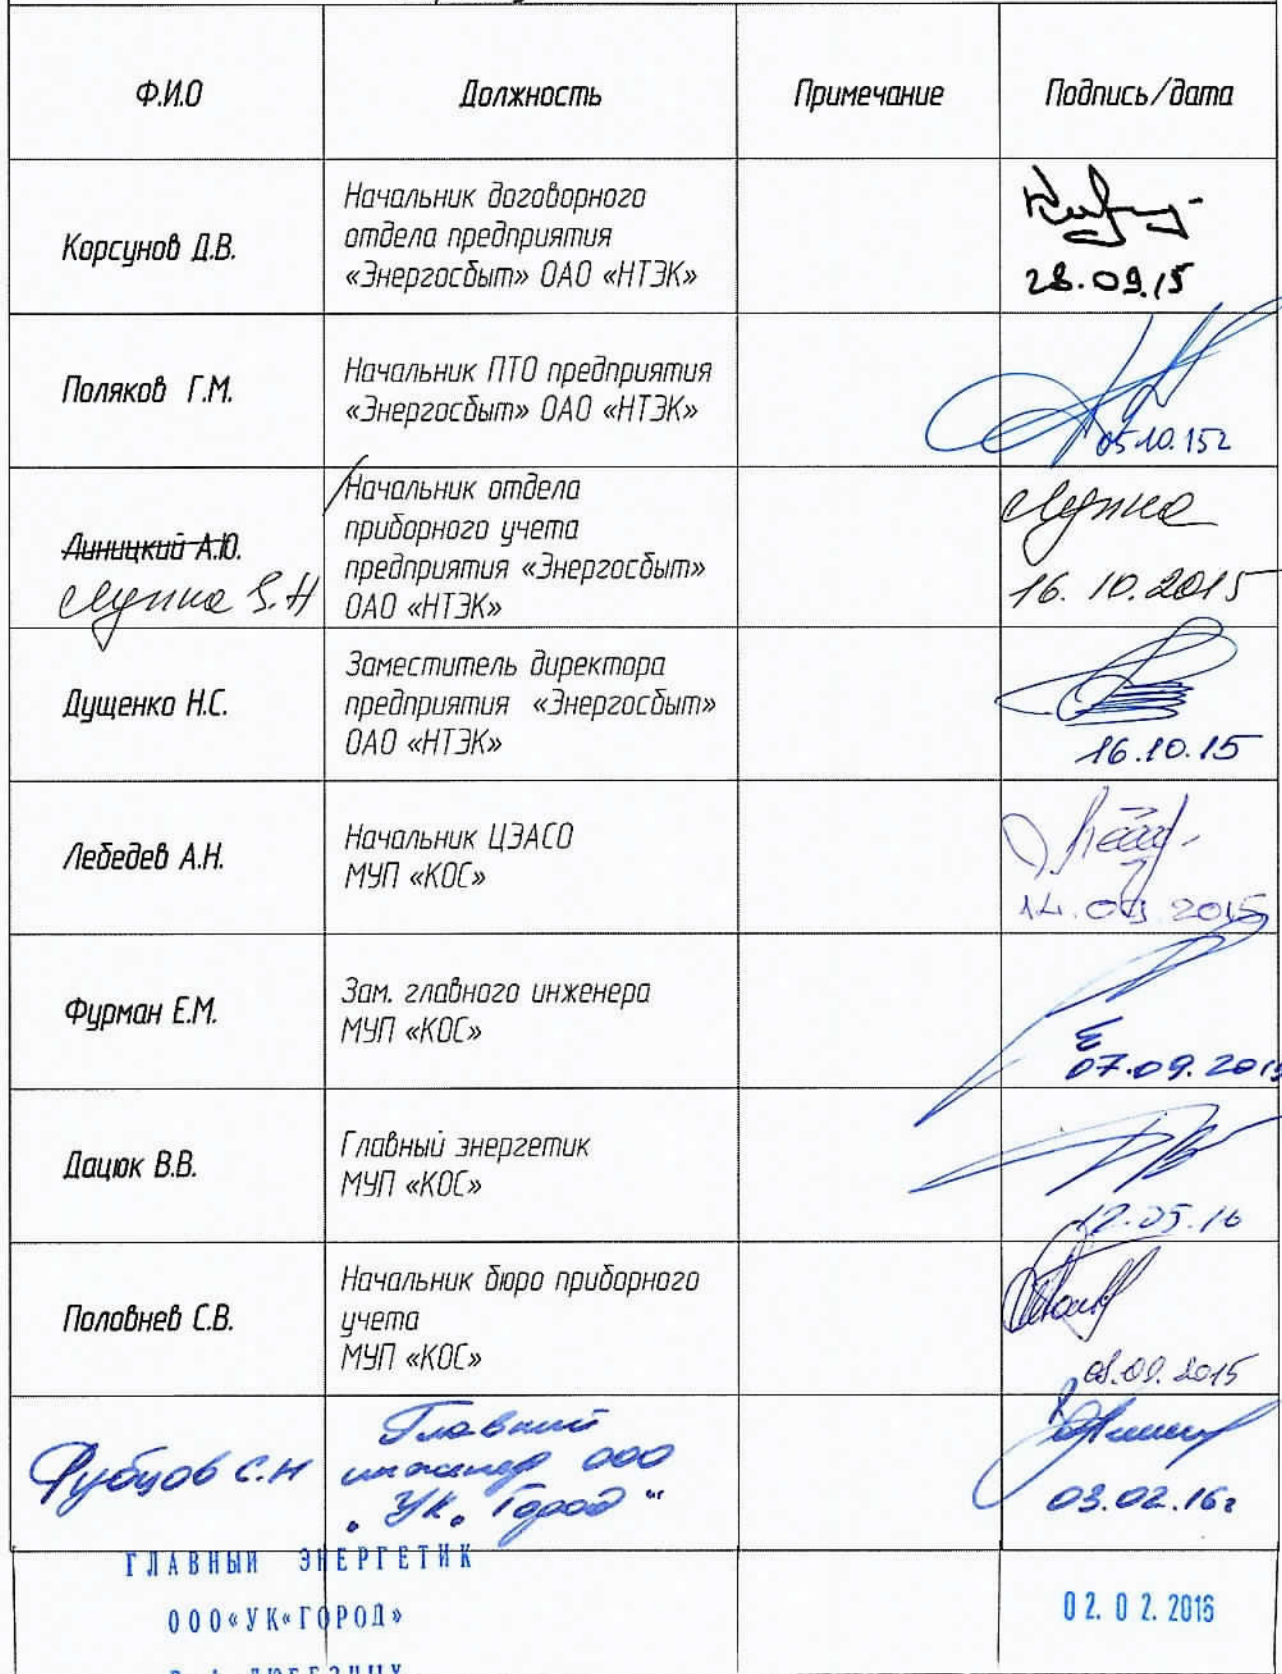 Ф.И.О
Должность
Примечание
Подпись/дата
Корсунов Д.В.
Начальник договорного
отдела предприятия
«Энергосбыт» ОАО «НТЭК»
28.09.15
Поляков Г.М.
Начальник ПТО предприятия
«Энергосбыт» ОАО «НТЭК»
05.10.15г
Линицкий А.Ю.
Начальник отдела
приборного учета
предприятия «Энергосбыт»
ОАО «НТЭК»
16.10.2015
Дущенко Н.С.
Заместитель директора
предприятия «Энергосбыт»
ОАО «НТЭК»
16.10.15
Лебедев А.Н.
Начальник ЦЭАСО
МУП «КОС»
2015
Фурман Е.М.
Зам. главного инженера
МУП «КОС»
07.09.2015
Дацюк В.В.
Главный энергетик
МУП «КОС»
Половнев С.В.
Начальник бюро приборного
учета
МУП «КОС»
Рубцов С.Н
Главный
инженер ООО
"УК "Город"
03.02.16г
ГЛАВНЫЙ ЭНЕРГЕТИК
ООО«УК«ГОРОД»
02.02.2016